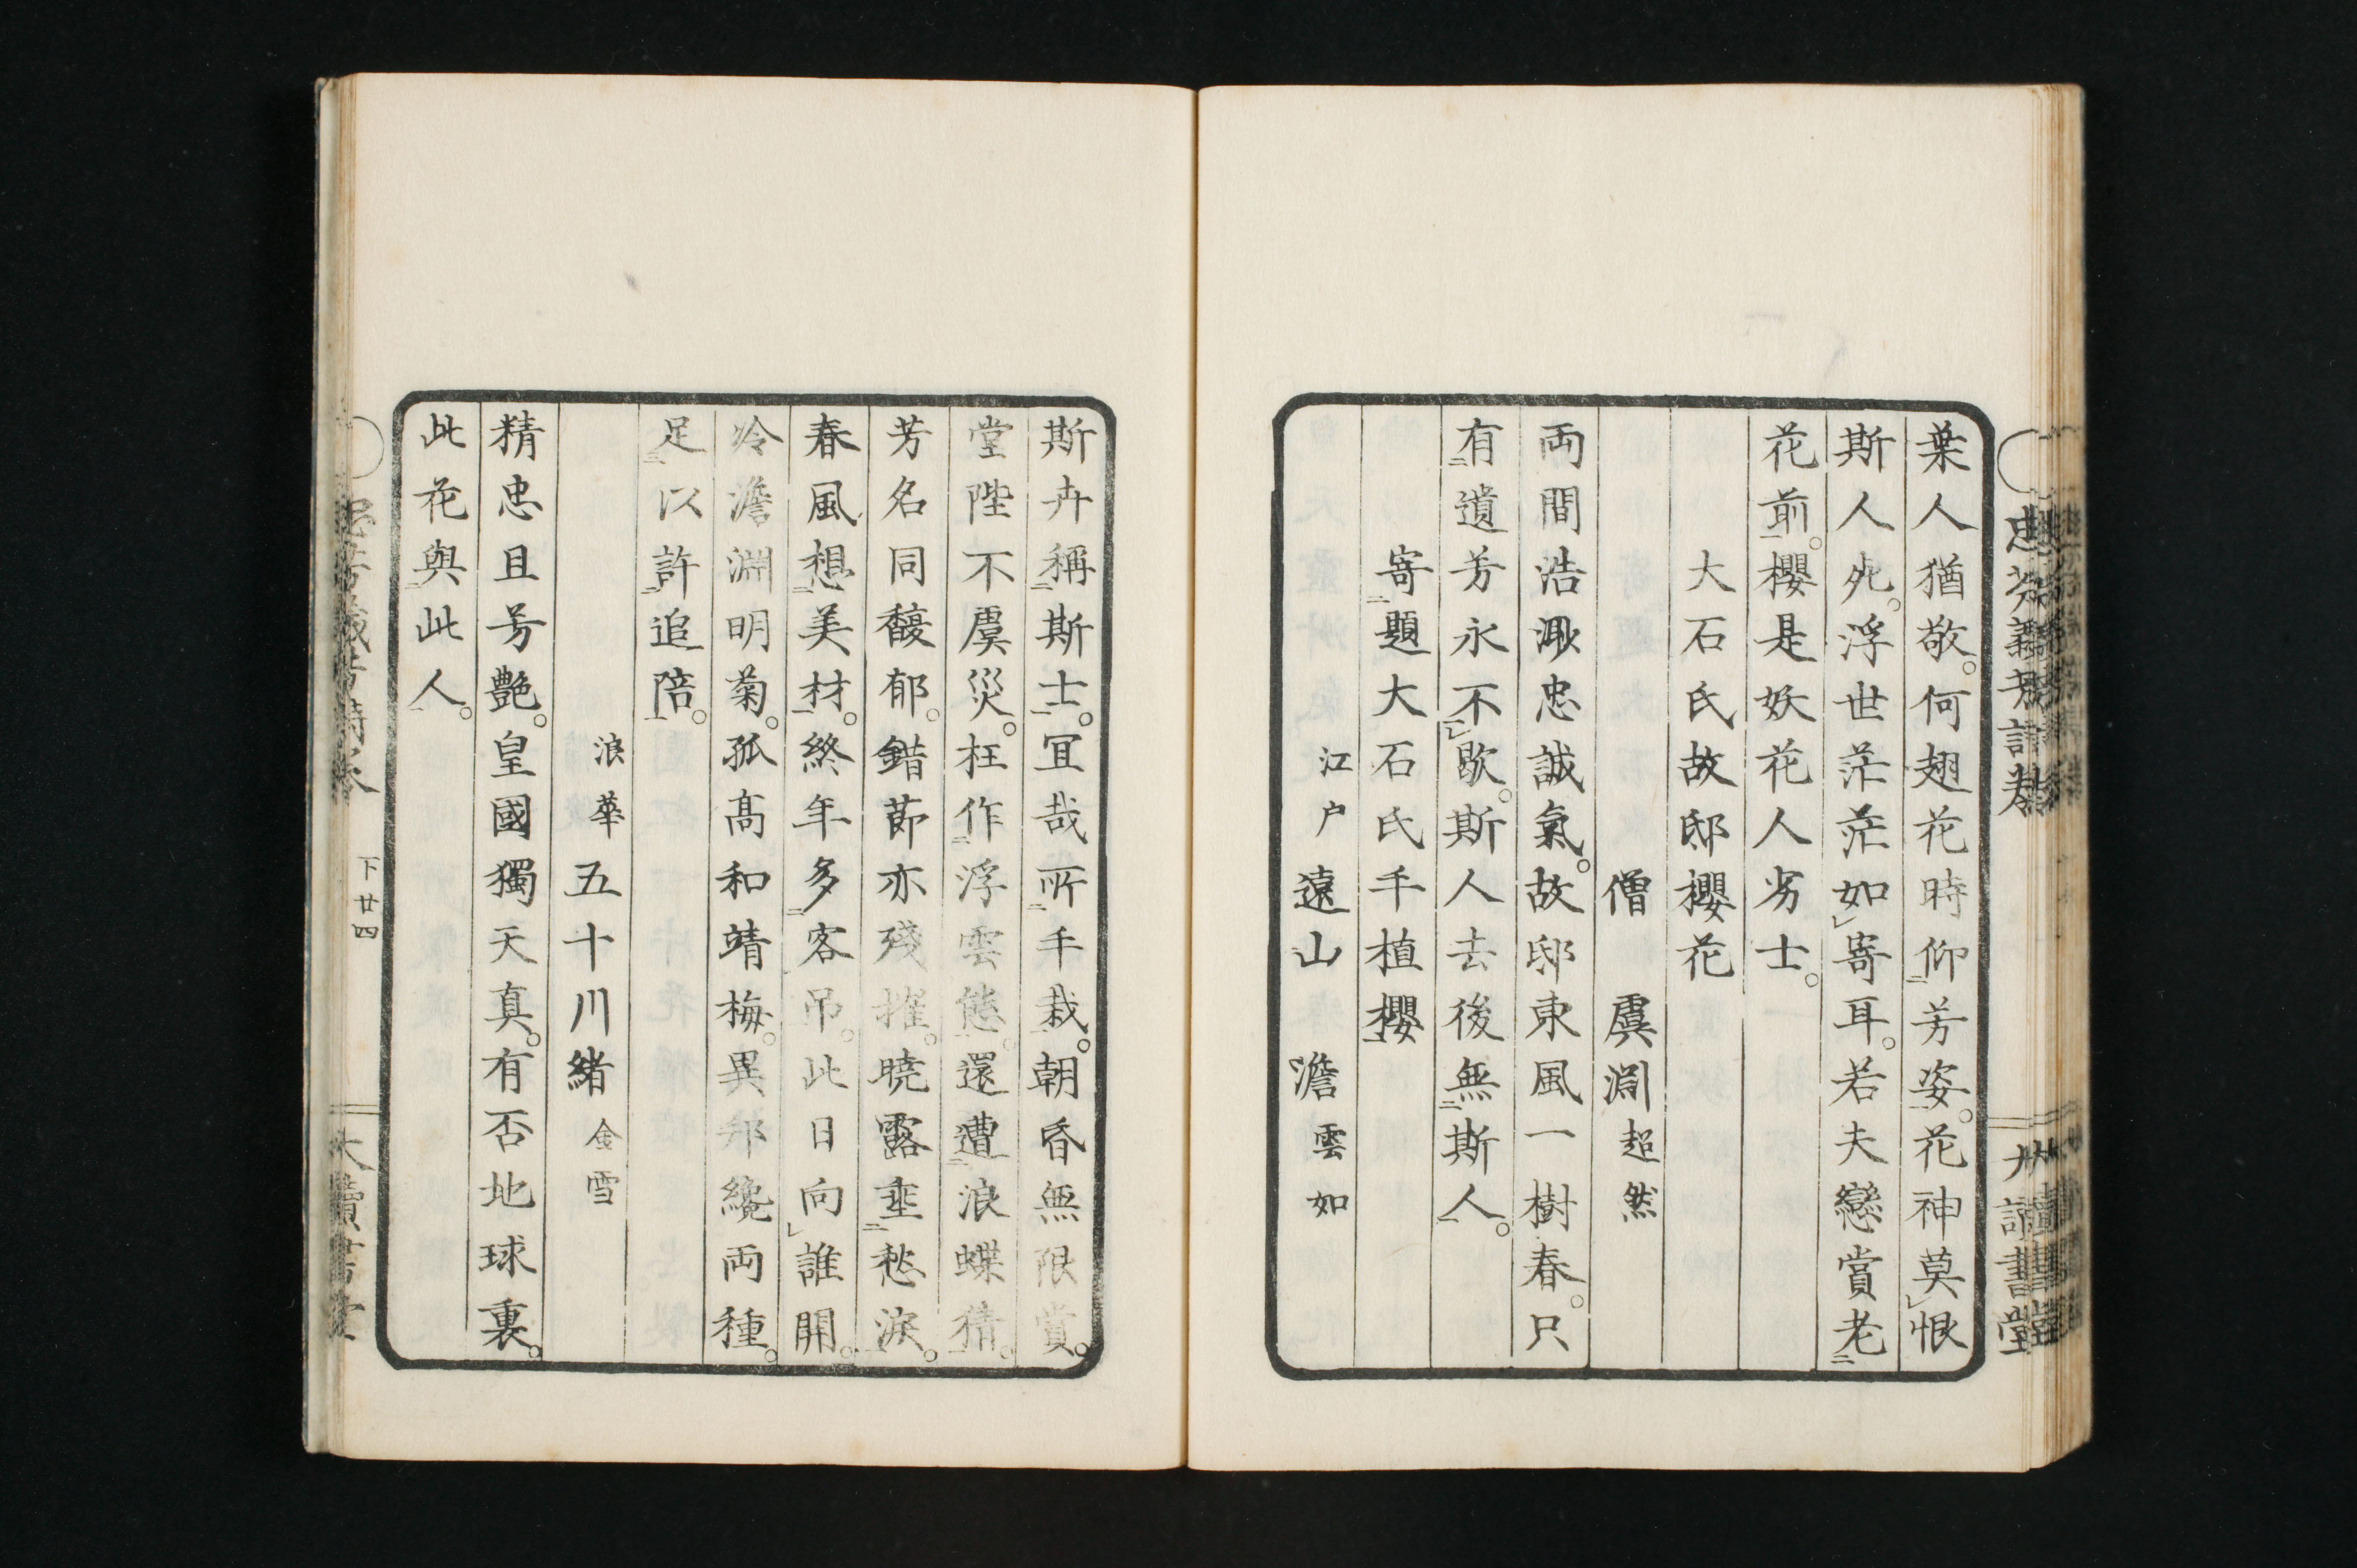 葉人猶敬。何翅花時仰二芳姿一。花神莫レ恨
斯人死。浮世茫茫如レ寄耳。若夫戀賞老二
花前一。櫻是妖花人劣士。
大石氏故邸櫻花
僧 虞淵超然
両間浩溂忠誠氣。故邸東風一樹春。只
有二遺芳永不一レ歇。斯人去後無二斯人一。
寄二題大石氏手植櫻一
江戸 遠山 澹雲如
斯卉稱二斯士一。冝哉所二手栽一。朝昏無限賞。
堂陛不虞災。枉作二浮雲態一。還遭二浪蝶猜一。
芳名同馥郁。錯莭亦殘摧。曉露埀二愁淚一。
春風想二美材一。終年多二客吊一。此日向レ誰開。
冷澹淵明菊。孤高和靖梅。異邦纔両種。
足二以許二追陪一。
浪華 五十川緒 金雪
精忠且芳艶。皇國獨天真。有否地球裏。
此花與二此人一。
下廿四